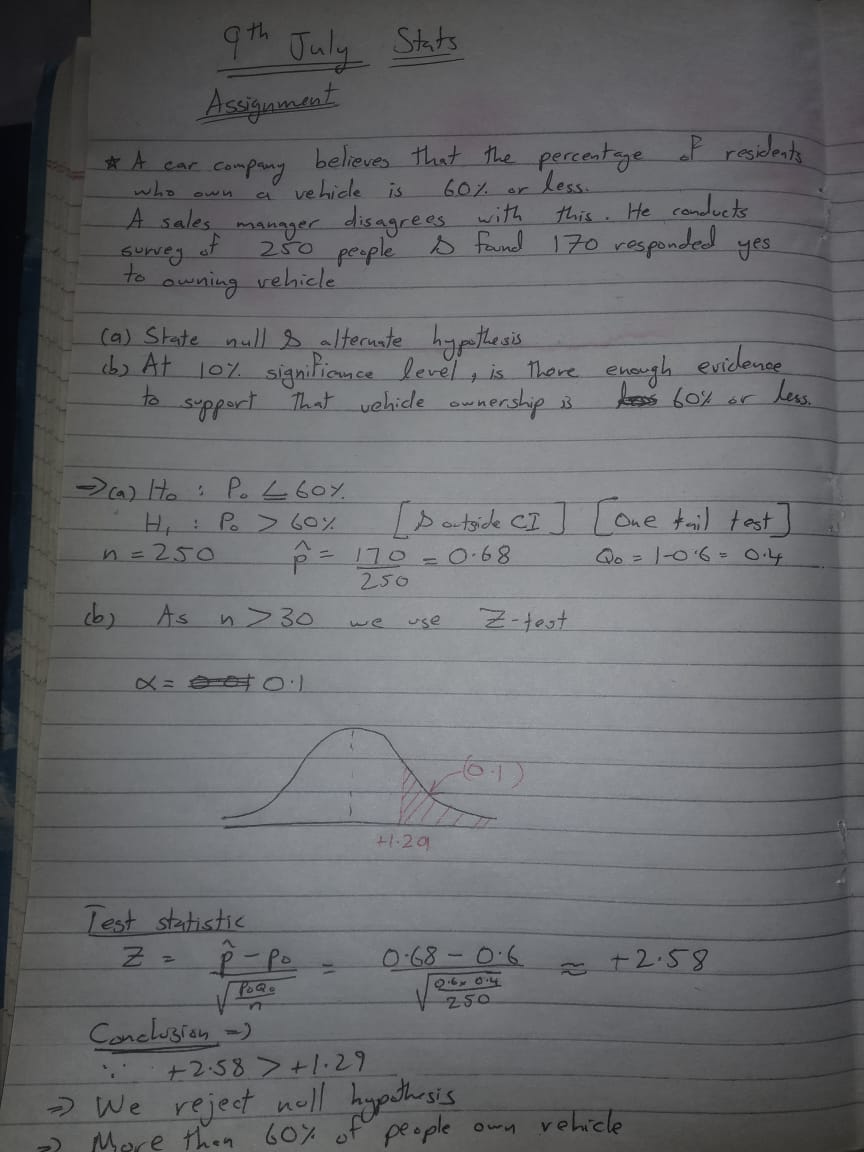 9th July Stats
Assignment
* A car company believes that the percentage of residents
who own a vehicle is 60% or less.
A sales manager disagrees with this. He conducts
survey of 250 people & found 170 responded yes
to owning vehicle
(a) State null & alternate hypothesis
(b) At 10% significance level, is there enough evidence
to support that vehicle ownership is 60% or less.
⇒ (a) H₀ : P₀ ≤ 60%.
H₁ : P₀ > 60% [& outside CI] [One tail test]
n = 250 p̂ = 170/250 = 0.68 Q₀ = 1-0.6 = 0.4
(b) As n > 30 we use Z-test
α = 0.1
(0.1)
+1.29
Test statistic
Z = (p̂ - p₀)/√(p₀Q₀/n) = (0.68 - 0.6)/√(0.6 x 0.4/250) ≈ +2.58
Conclusion ⇒
∵ +2.58 > +1.29
⇒ We reject null hypothesis
⇒ More than 60% of people own vehicle